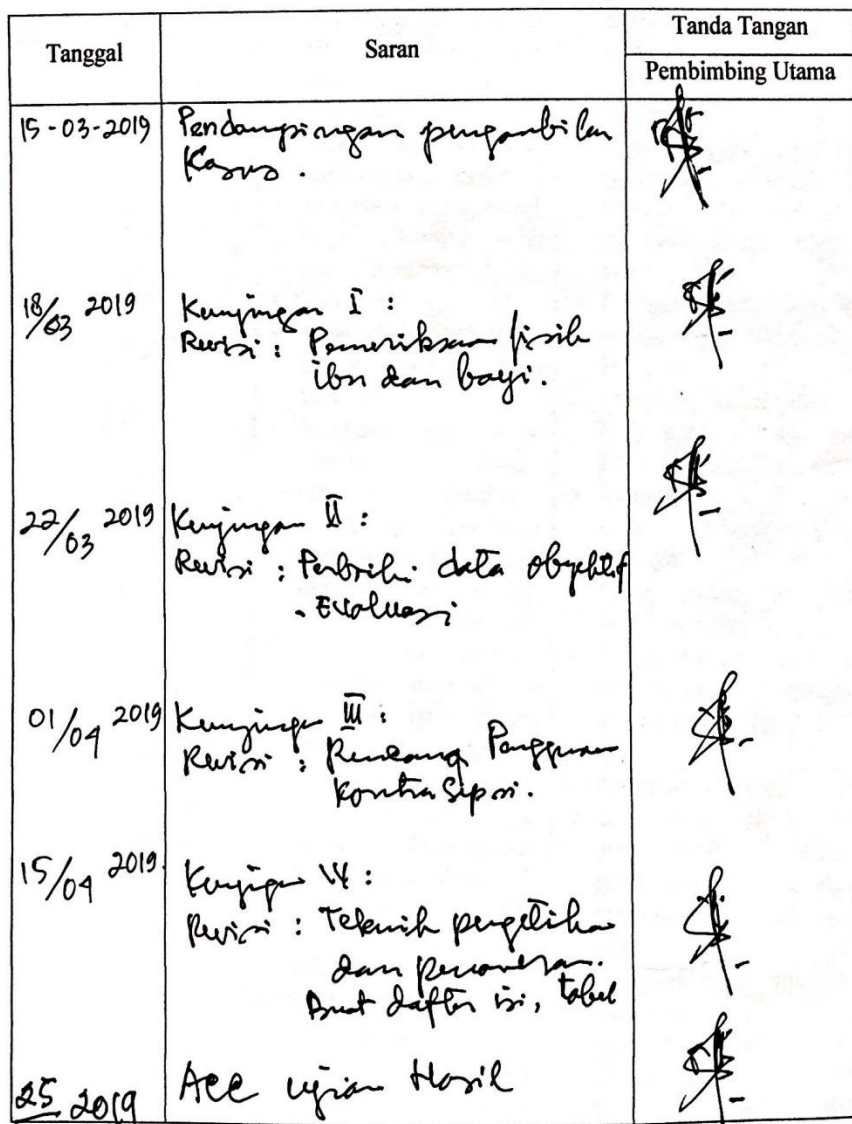 Tanggal
Saran
Tanda Tangan
Pembimbing Utama
15-03-2019
Pendampingan pengambilan
Kasus.
18/03 2019
Kunjungan I :
Revisi : Pemeriksaan fisik
ibu dan bayi.
22/03 2019
Kunjungan II :
Revisi : Perbaiki data obyektif
- Evaluasi
01/04 2019
Kunjungan III :
Revisi : Rencana Penggunaan
kontrasepsi.
15/04 2019
Kunjungan IV :
Revisi : Teknik pengetikan
dan
Buat daftar isi, tabel
25 2019
Acc ujian Hasil